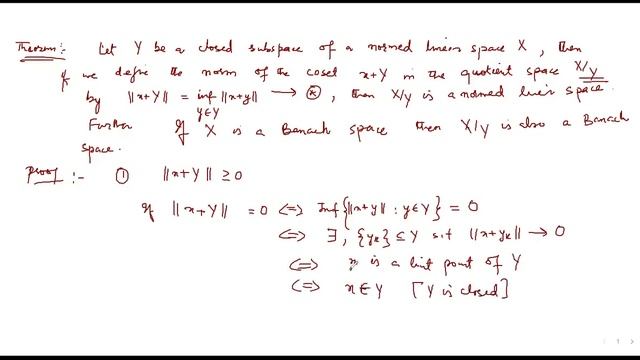 Theorem:- Let Y be a closed subspace of a normed linear space X, then
if we define the norm of the coset x+Y in the quotient space X/Y
by ||x+Y|| = inf_{y∈Y} ||x+y|| → ⊛, then X/Y is a normed linear space.
Further If X is a Banach space then X/Y is also a Banach
space.
Proof :- ① ||x+Y|| ≥ 0
If ||x+Y|| = 0 ⇔ Inf{||x+y|| : y∈Y} = 0
⇔ ∃, {yₖ} ⊆ Y s.t ||x+yₖ|| → 0
⇔ x is a limit point of Y
⇔ x∈Y [Y is closed]